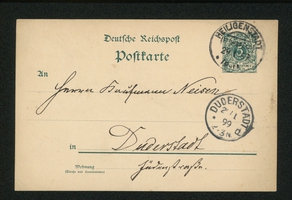 Deutsche Reichspost
Postkarte
HEILIGENSTADT
5
An
Herrn Kaufmann Neisen
DUDERSTADT
99
in Duderstadt
Jüdenstraße.
Wohnung